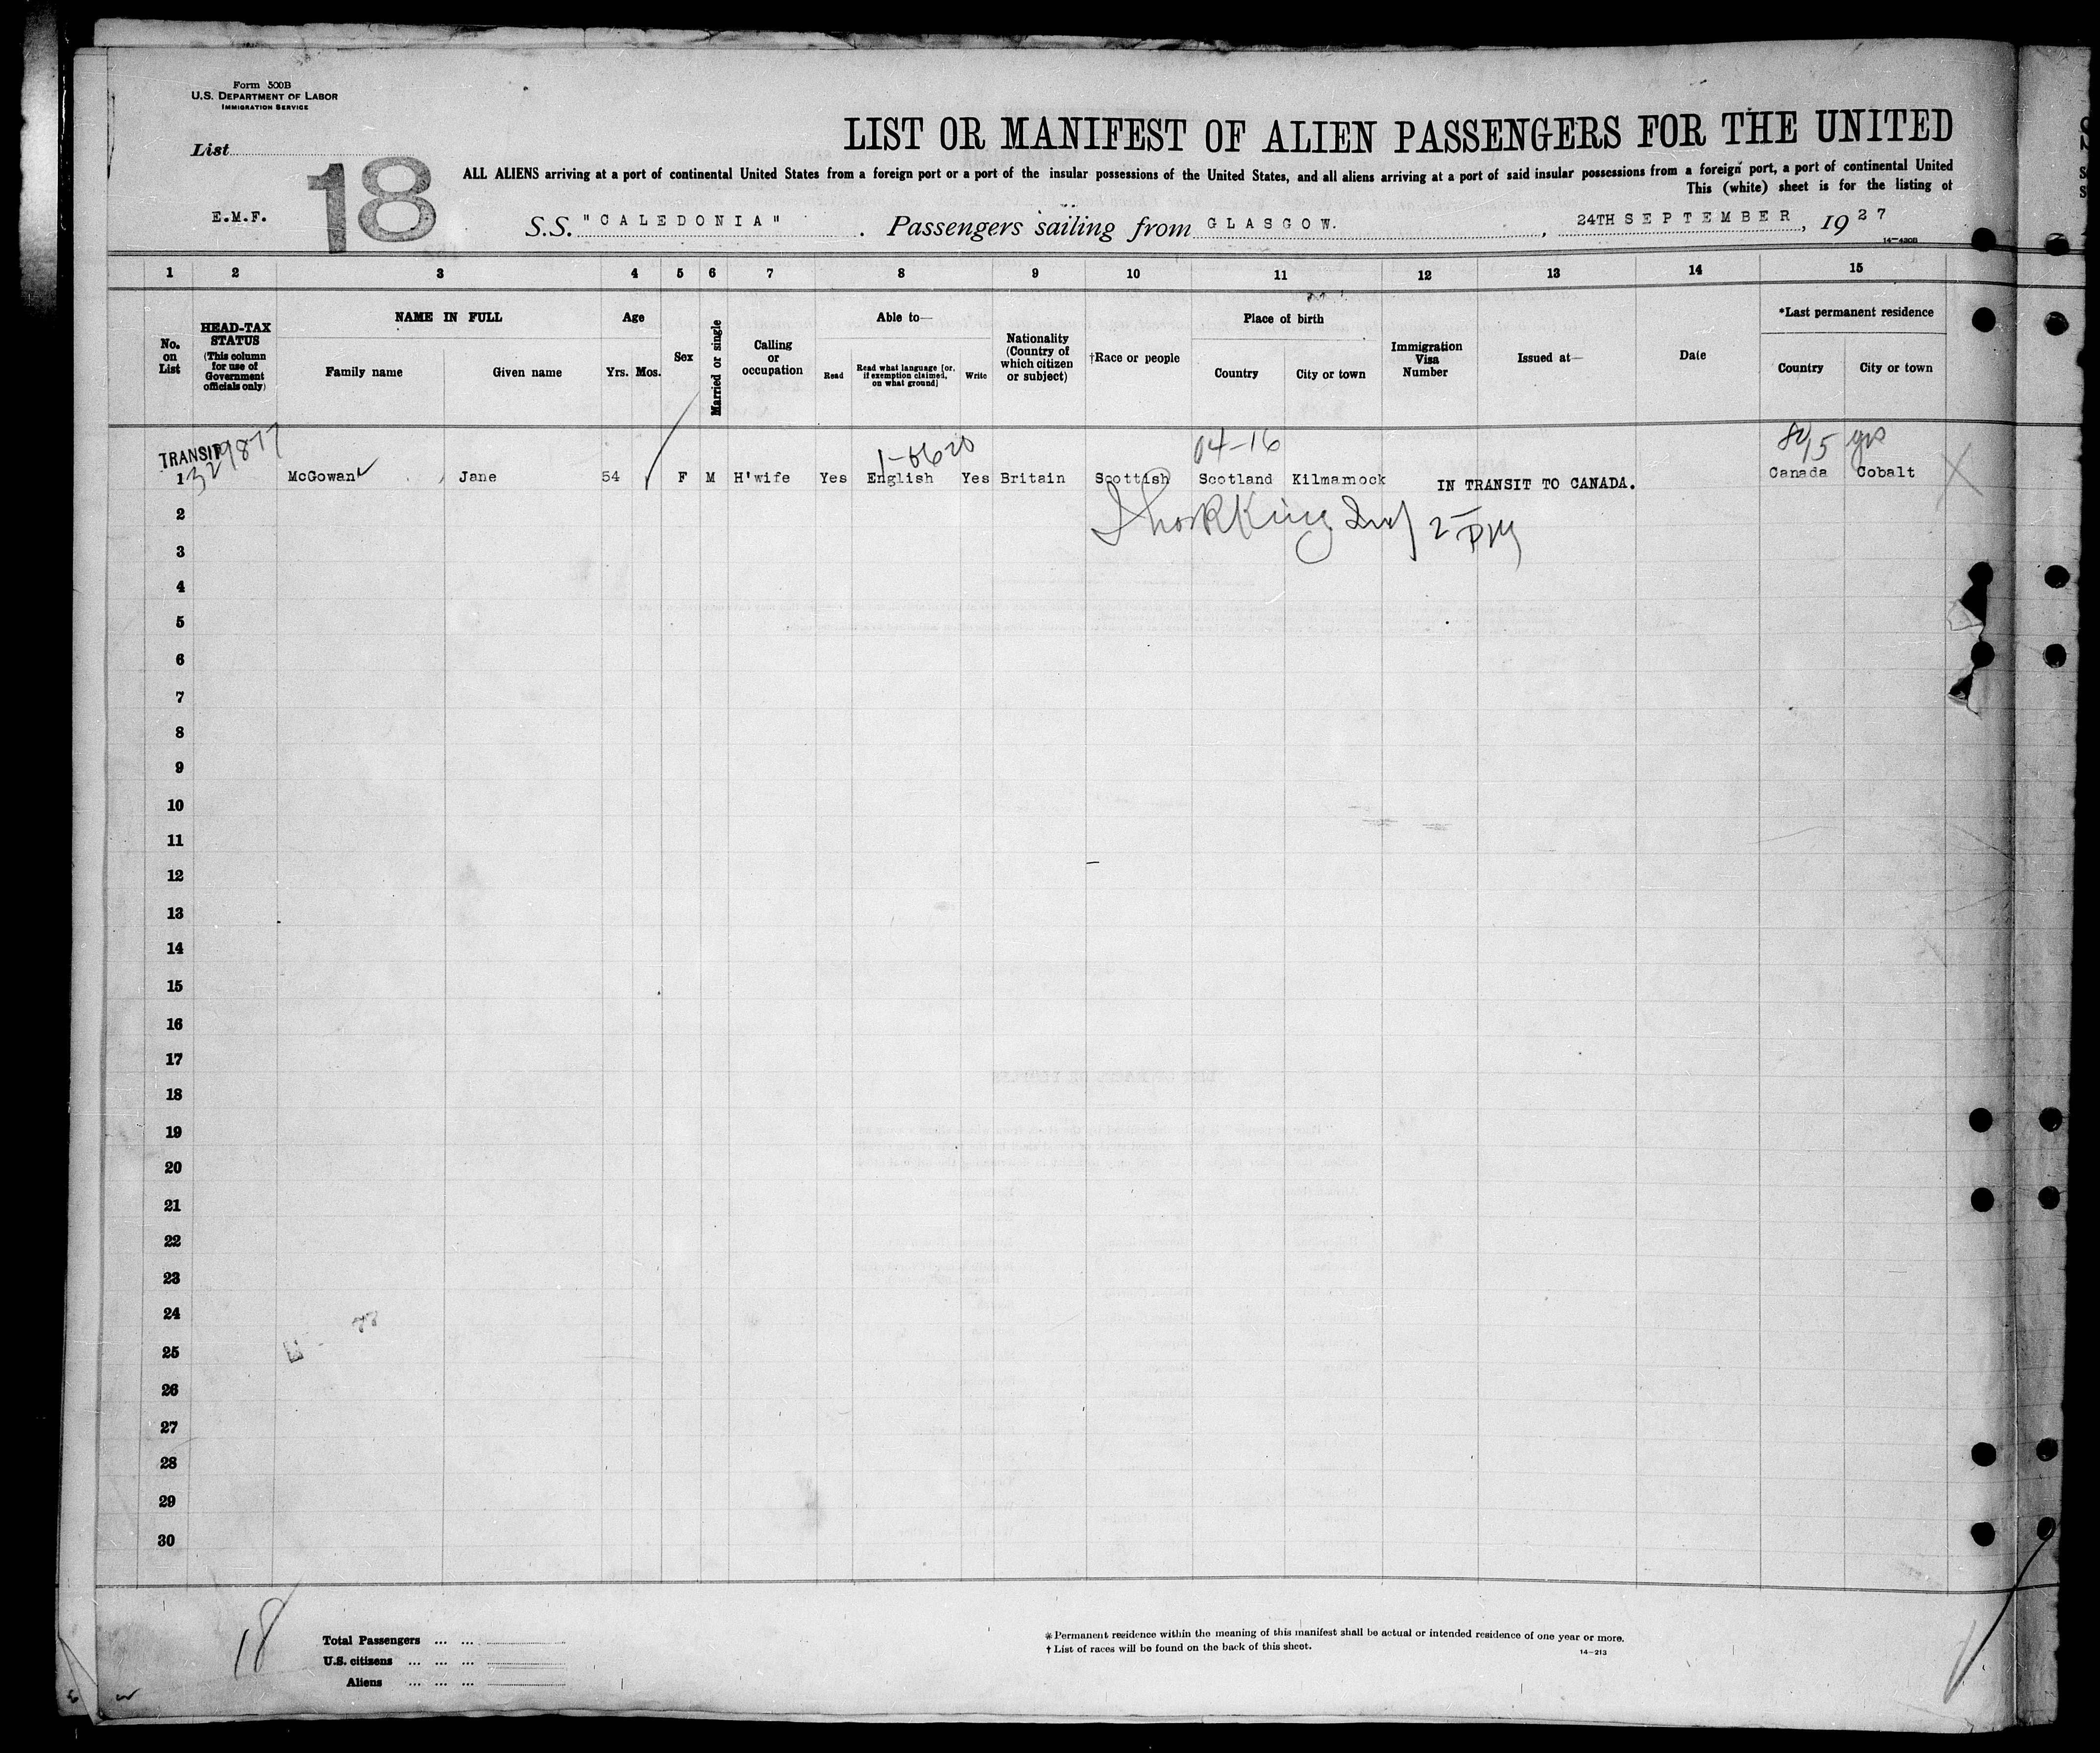 Form 500B
U.S. DEPARTMENT OF LABOR
IMMIGRATION SERVICE
List
18
E.M.F.
LIST OR MANIFEST OF ALIEN PASSENGERS FOR THE UNITED
ALL ALIENS arriving at a port of continental United States from a foreign port or a port of the insular possessions of the United States, and all aliens arriving at a port of said insular possessions from a foreign port, a port of continental United
This (white) sheet is for the listing of
S.S. "CALEDONIA" . Passengers sailing from GLASGOW. , 24TH SEPTEMBER , 1927
1 2 3 4 5 6 7 8 9 10 11 12 13 14 15
No. on List
HEAD-TAX STATUS (This column for use of Government officials only)
NAME IN FULL
Family name Given name
Age
Yrs. Mos.
Sex
Married or single
Calling or occupation
Able to—
Read Read what language [or, if exemption claimed, on what ground] Write
Nationality (Country of which citizen or subject)
†Race or people
Place of birth
Country City or town
Immigration Visa Number
Issued at—
Date
*Last permanent residence
Country City or town
TRANSIT 329877 04-16 yrs
1 McGowan Jane 54 F M H'wife Yes English Yes Britain Scottish Scotland Kilmarnock IN TRANSIT TO CANADA. Canada Cobalt
2 2 PM
3
4
5
6
7
8
9
10
11
12
13
14
15
16
17
18
19
20
21
22
23
24
25
26
27
28
29
30
18
Total Passengers ... ...
U.S. citizens ... ... ...
Aliens ... ... ...
* Permanent residence within the meaning of this manifest shall be actual or intended residence of one year or more.
† List of races will be found on the back of this sheet.
14—213